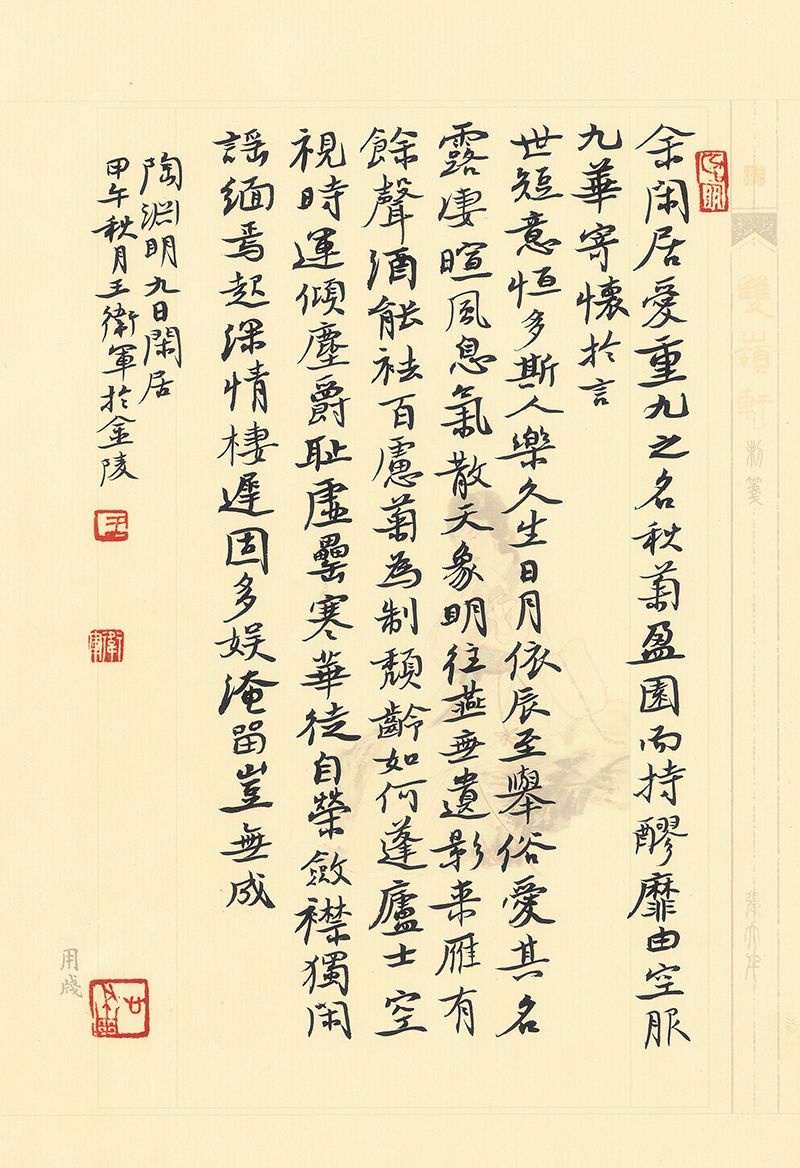 余閑居愛重九之名秋菊盈園而持醪靡由空服
九華寄懷於言
世短意恒多斯人樂久生日月依辰至舉俗愛其名
露凄暄風息氣散天象明往燕無遺影来雁有
餘聲酒能祛百慮菊為制頹齡如何蓬廬士空
視時運傾塵爵耻虚罍寒華徒自榮斂襟獨閑
謡緬焉起深情棲遲固多娱淹留豈無成
陶淵明九日閑居
甲午秋月王衛軍於金陵
雙嶺軒
制箋
用牋